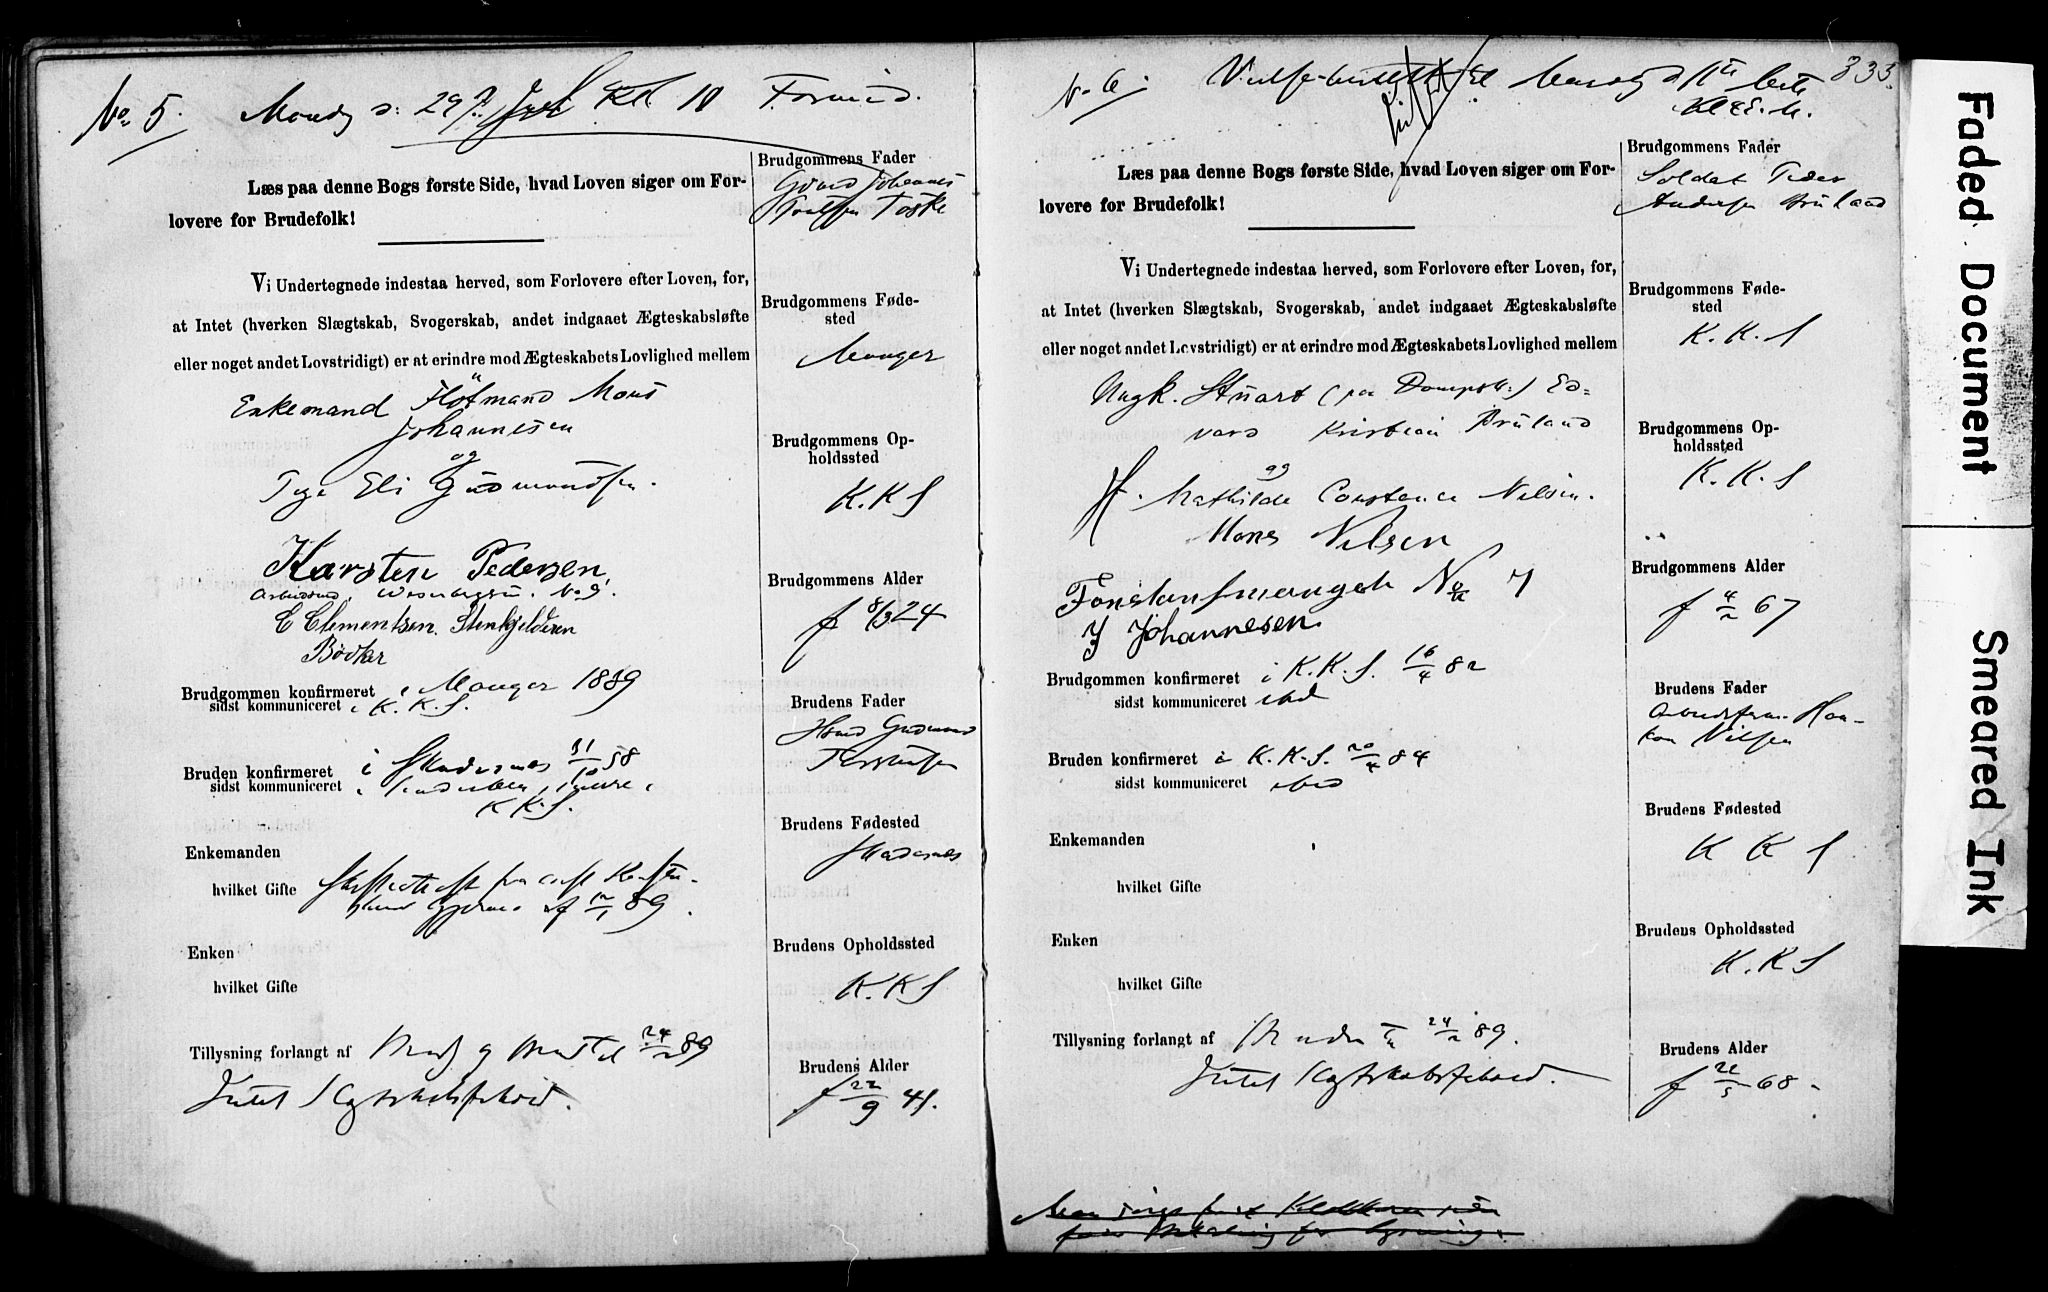 No 5. Mandag d. 29 Kl 10 Formid.
Læs paa denne Bogs første Side, hvad Loven siger om For-
lovere for Brudefolk!
Vi Undertegnede indestaa herved, som Forlovere efter Loven, for,
at Intet (hverken Slægtskab, Svogerskab, andet indgaaet Ægteskabsløfte
eller noget andet Lovstridigt) er at erindre mod Ægteskabets Lovlighed mellem
Enkemand Flötmand Mons
Johannesen
og
Pige Eli Gudmundsen.
Karsten Pedersen,
No 9.
E Clementsen. Stenkjelderen
Bødker
Brudgommen konfirmeret i Manger 1839
sidst kommuniceret i K. K. S.
Bruden konfirmeret i Skudesnes 31/10 58
sidst kommuniceret i
K. K. S.
Enkemanden
hvilket Gifte Skifteattest fra
af 12/1 89.
Enken
hvilket Gifte
Tillysning forlangt af Brudg og 24/2 89
Intet Slægtskabsforhold.
Brudgommens Fader
Gaard Johannes
Brudgommens Føde-
sted
Manger
Brudgommens Op-
holdssted
K. K S
Brudgommens Alder
f 8/3 24
Brudens Fader
Gudmund
Brudens Fødested
Skudesnes
Brudens Opholdssted
K. K S
Brudens Alder
f 22/9 41.
333.
No 6. Mandag d 11te
Læs paa denne Bogs første Side, hvad Loven siger om For-
lovere for Brudefolk!
Vi Undertegnede indestaa herved, som Forlovere efter Loven, for,
at Intet (hverken Slægtskab, Svogerskab, andet indgaaet Ægteskabsløfte
eller noget andet Lovstridigt) er at erindre mod Ægteskabets Lovlighed mellem
Ungk. Stuart (paa Dampsk:) Ed-
vard Kristian Bruland
og
Mathilde Constance Nilsen.
Hans Nilsen
No 7
J Johannesen
Brudgommen konfirmeret i K. K. S. 16/4 82
sidst kommuniceret ibid
Bruden konfirmeret i K. K. S. 20/4 84
sidst kommuniceret ibid
Enkemanden
hvilket Gifte
Enken
hvilket Gifte
Tillysning forlangt af 24/2 89.
Intet Slægtskabsforhold.
Brudgommens Fader
Soldat Peder
Andersen Bruland
Brudgommens Føde-
sted
K. K. S
Brudgommens Op-
holdssted
K. K. S
Brudgommens Alder
f 4/2 67
Brudens Fader
Arbeidsm. Haa-
kon Nilsen
Brudens Fødested
K K S
Brudens Opholdssted
K. K S
Brudens Alder
f 68
Faded Document
Smeared Ink